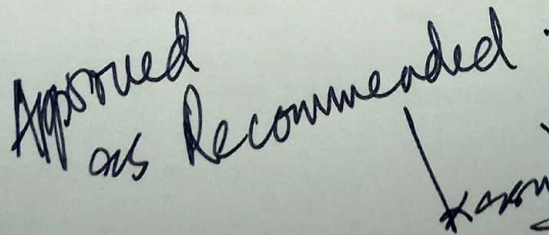 Approved
as Recommended.